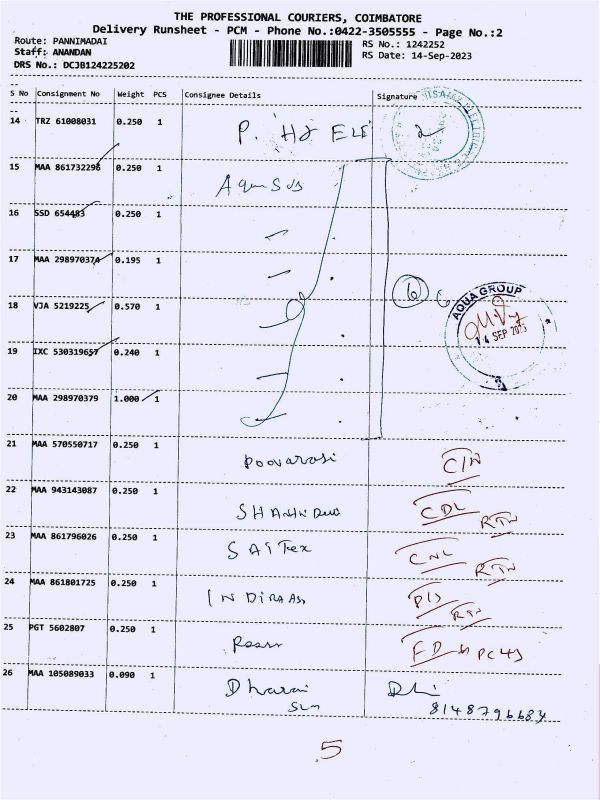 THE PROFESSIONAL COURIERS, COIMBATORE
Delivery Runsheet - PCM - Phone No.:0422-3505555 - Page No.:2
Route: PANNIMADAI
RS No.: 1242252
Staff: ANANDAN
RS Date: 14-Sep-2023
DRS No.: DCJB124225202
S No Consignment No Weight PCS Consignee Details Signature
14 TRZ 61008031 0.250 1 P. ELE
15 MAA 861732296 0.250 1
16 SSD 654483 0.250 1
17 MAA 298970374 0.195 1
6
AQUA GROUP
18 VJA 5219225 0.570 1
14 SEP 2023
19 IXC 530319657 0.240 1
20 MAA 298970379 1.000 1
21 MAA 570550717 0.250 1 Poovarasi
22 MAA 943143087 0.250 1 CDL RTN
23 MAA 861796026 0.250 1 SAITex CNL RTN
24 MAA 861801725 0.250 1 RTN
25 PGT 5602807 0.250 1 FD
26 MAA 105089033 0.090 1 Dharani
8148796684
5